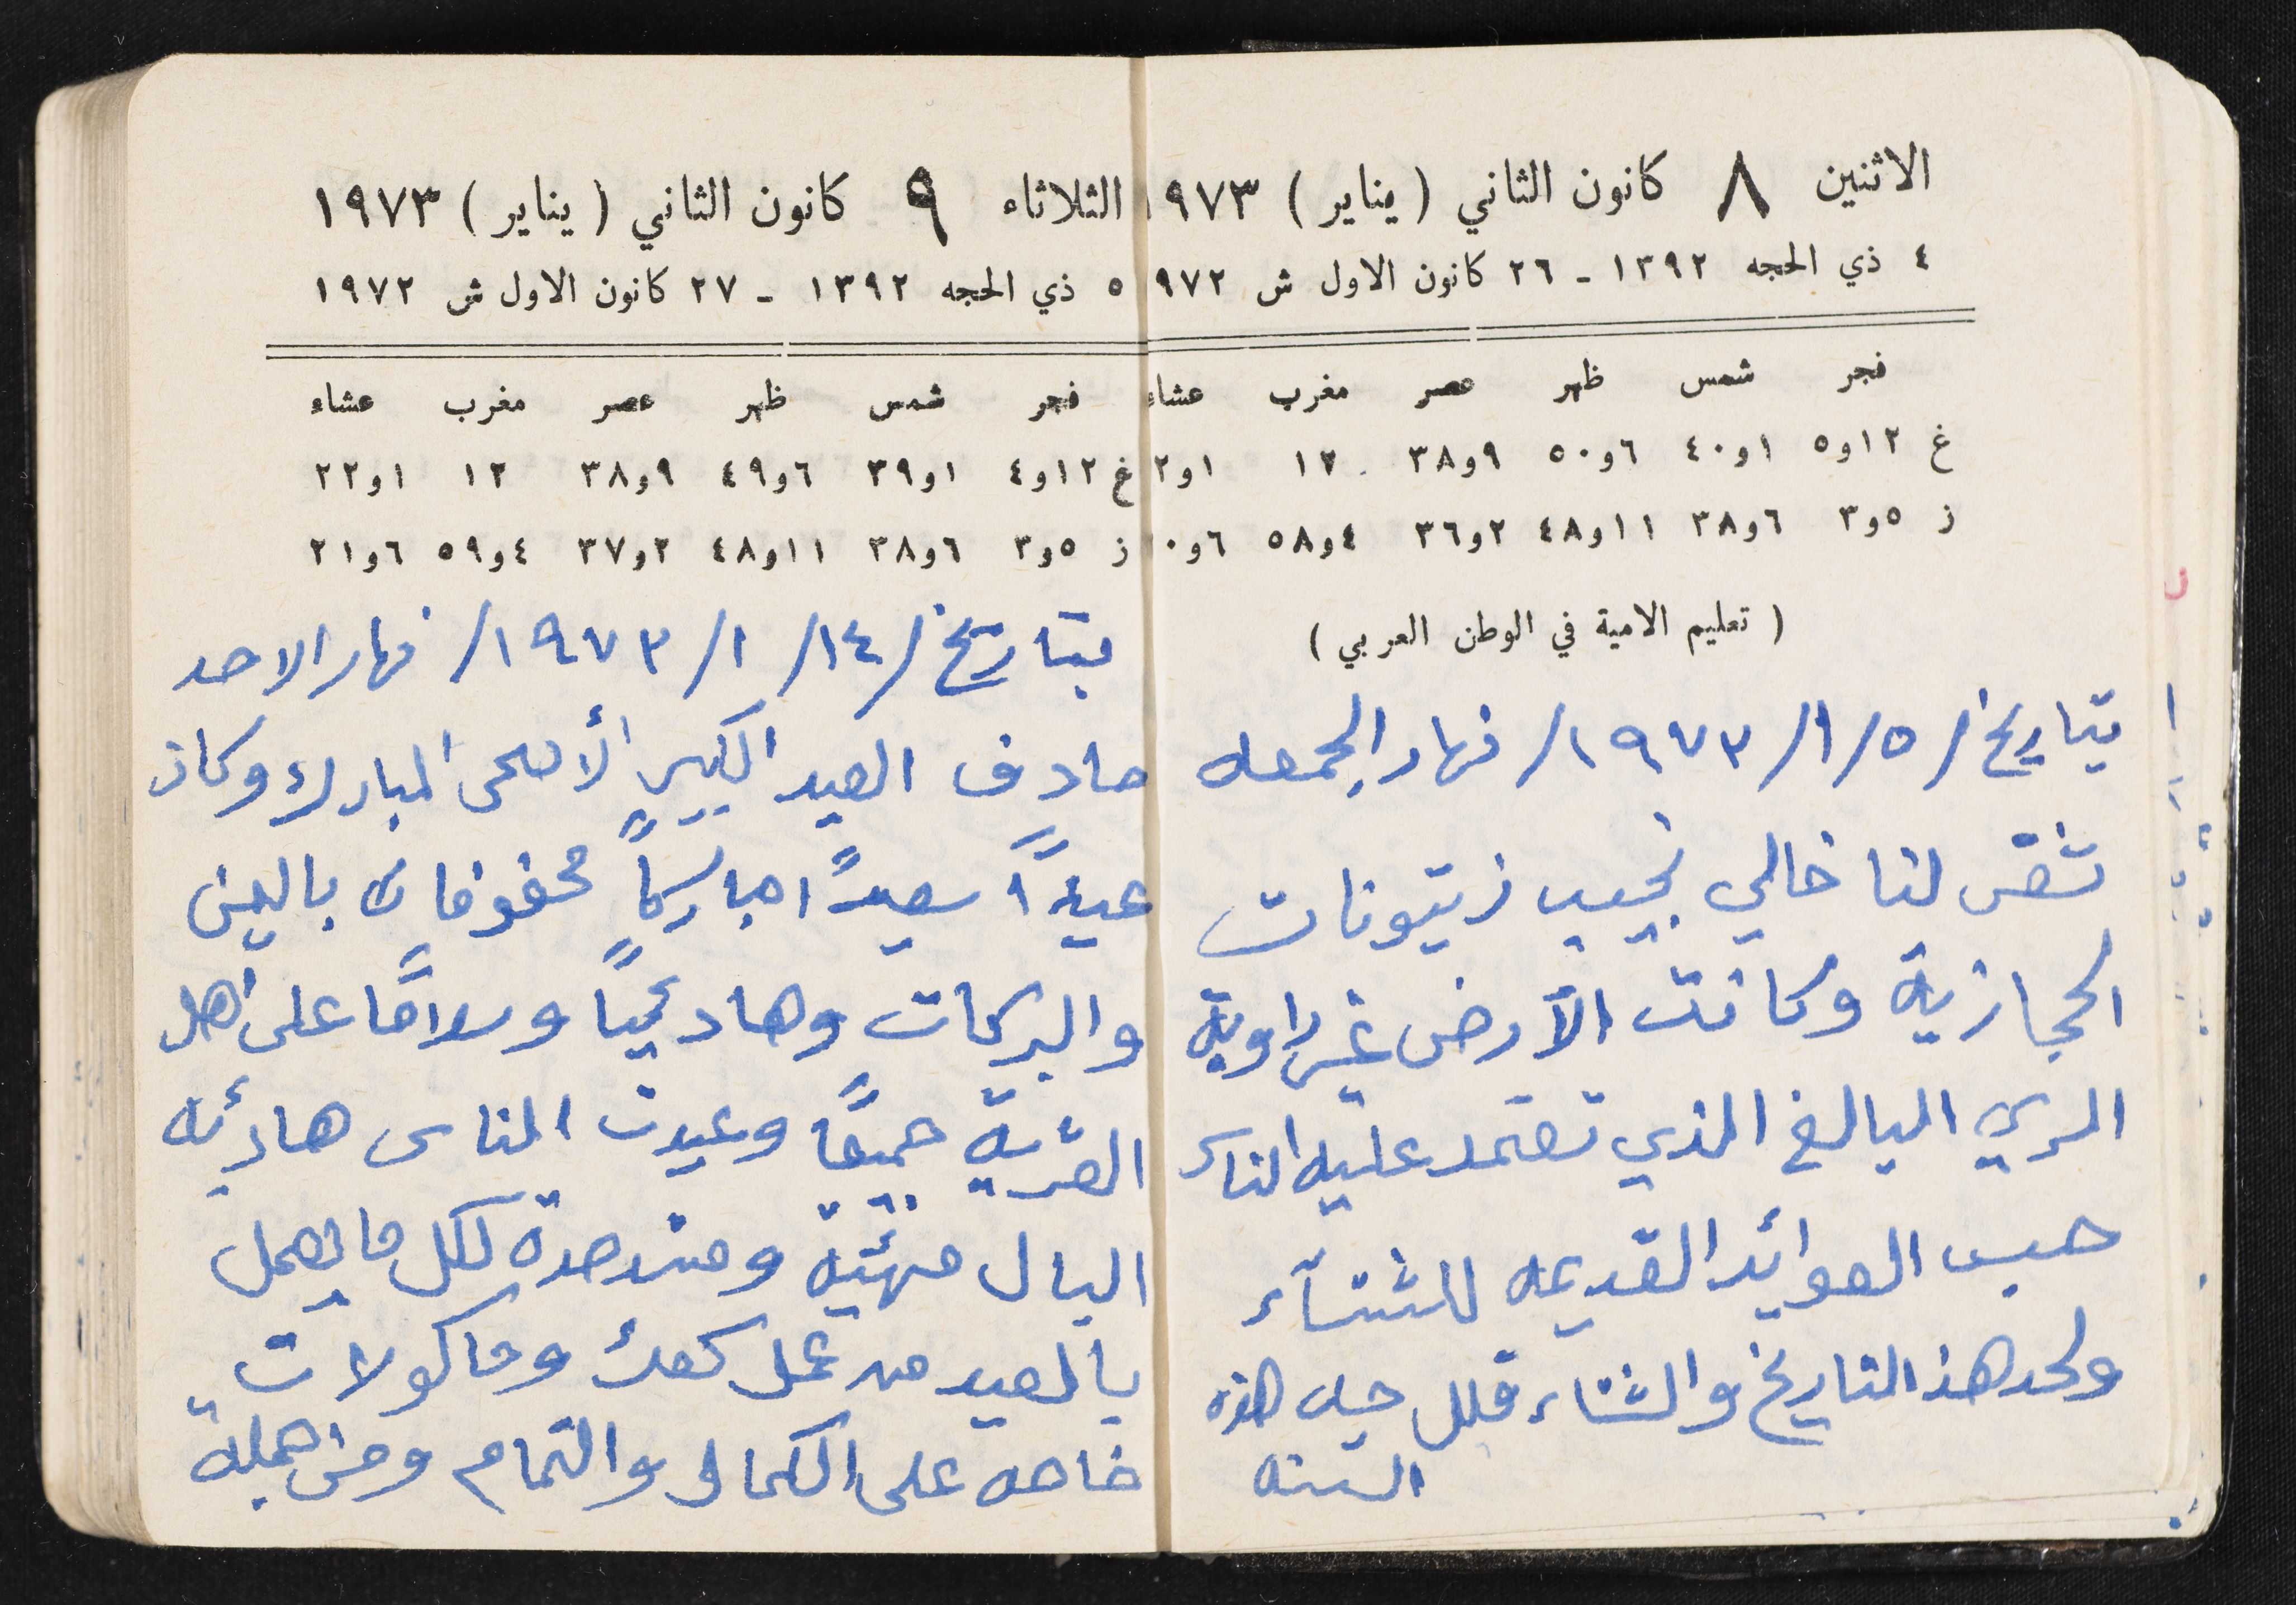 الاثنين ٨ كانون الثاني ( يناير ) ١٩٧٣
٤ ذي الحجه ١٣٩٢ - ٢٦ كانون الاول ش ٩٧٢
فجر شمس ظهر عصر مغرب عشاء
غ ١٢و٥ ١و٤٠ ٦و٥٠ ٩و٣٨ ١٢ ١و٢
ز ٥و٣ ٦و٣٨ ١١و٤٨ ٢و٣٦ ٤و٥٨ ٦و٠
( تعليم الامية في الوطن العربي )
بتاريخ / ٥/ ١/ ١٩٧٣/ نهار الجمعه
نقر لنا خالي نجيب زيتونات
الحجازية وكانت الأرض غير راوية
الري البالغ الذي تعتمد عليه الناس
حسب العوائد القديمه للشتآء
ولحد هذا التاريخ والشتاء قلل جيه هذه
السنه
الثلاثاء ٩ كانون الثاني ( يناير ) ١٩٧٣
٥ ذي الحجه ١٣٩٢ - ٢٧ كانون الاول ش ١٩٧٢
فجر شمس ظهر عصر مغرب عشاء
غ ١٢و٤ ١و٣٩ ٦و٤٩ ٩و٣٨ ١٢ ١و٢٢
ز ٥و٣ ٦و٣٨ ١١و٤٨ ٢و٣٧ ٤و٥٩ ٦و٢١
بتاريخ / ١٤/ ١/ ١٩٧٣/ نهار الاحد
صادف العيد الكبير الأضحى المبارك وكان
عيداً سعيداً مباركاً محفوفاً باليمن
والبركات وهاديًا وسلامًا على اهل
القرية جميعًا وعيدت الناس هادئه
البال مهيئة ومترصدة لكل ما يعمل
بالعيد من عمل كعك ومأكولات
خاصه على الكمال والتمام ومن جملة